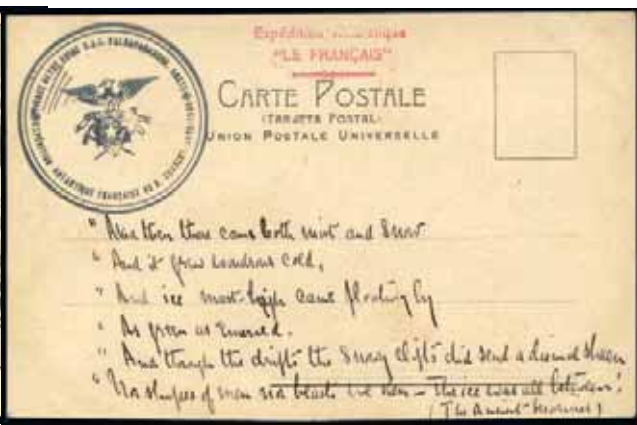 Expédition
"LE FRANÇAIS"
CARTE POSTALE
(TARJETA POSTAL)
UNION POSTALE UNIVERSELLE
ANTARTIQUE FRANÇAISE
" And then there came both mist and Snow
" And it grew wondrous cold,
" And ice mast-high came floating by
" As green as Emerald.
" And through the drifts the Snowy clifts did send a dismal sheen
" Nor shapes of men nor beasts we ken - The ice was all between!
(The Ancient Mariner)